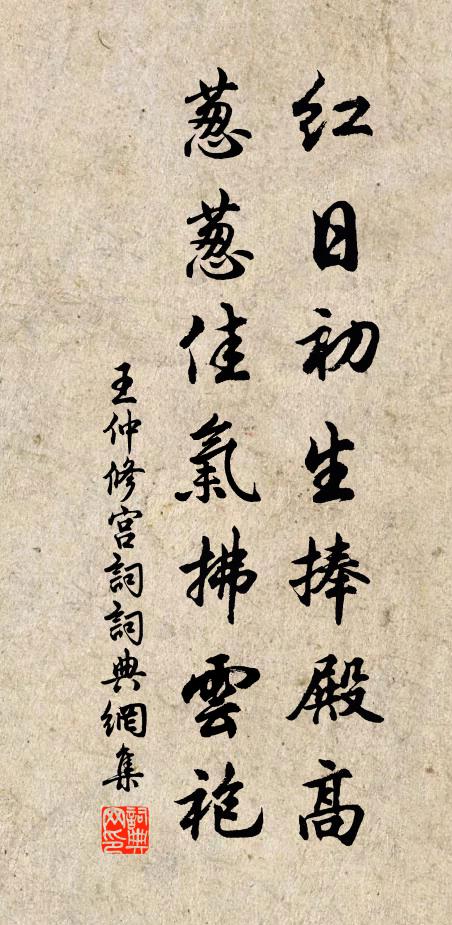 红日初生捧殿高
葱葱佳氣拂雲袍
王仲修宫詞詞典網集
詞典网印